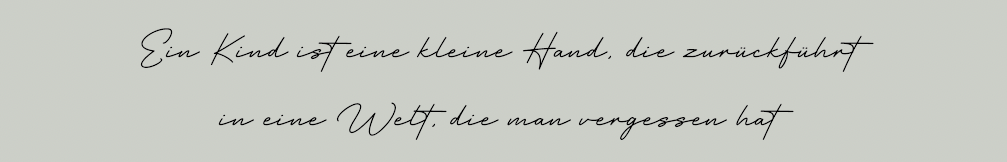 Ein Kind ist eine kleine Hand, die zurückführt
in eine Welt, die man vergessen hat